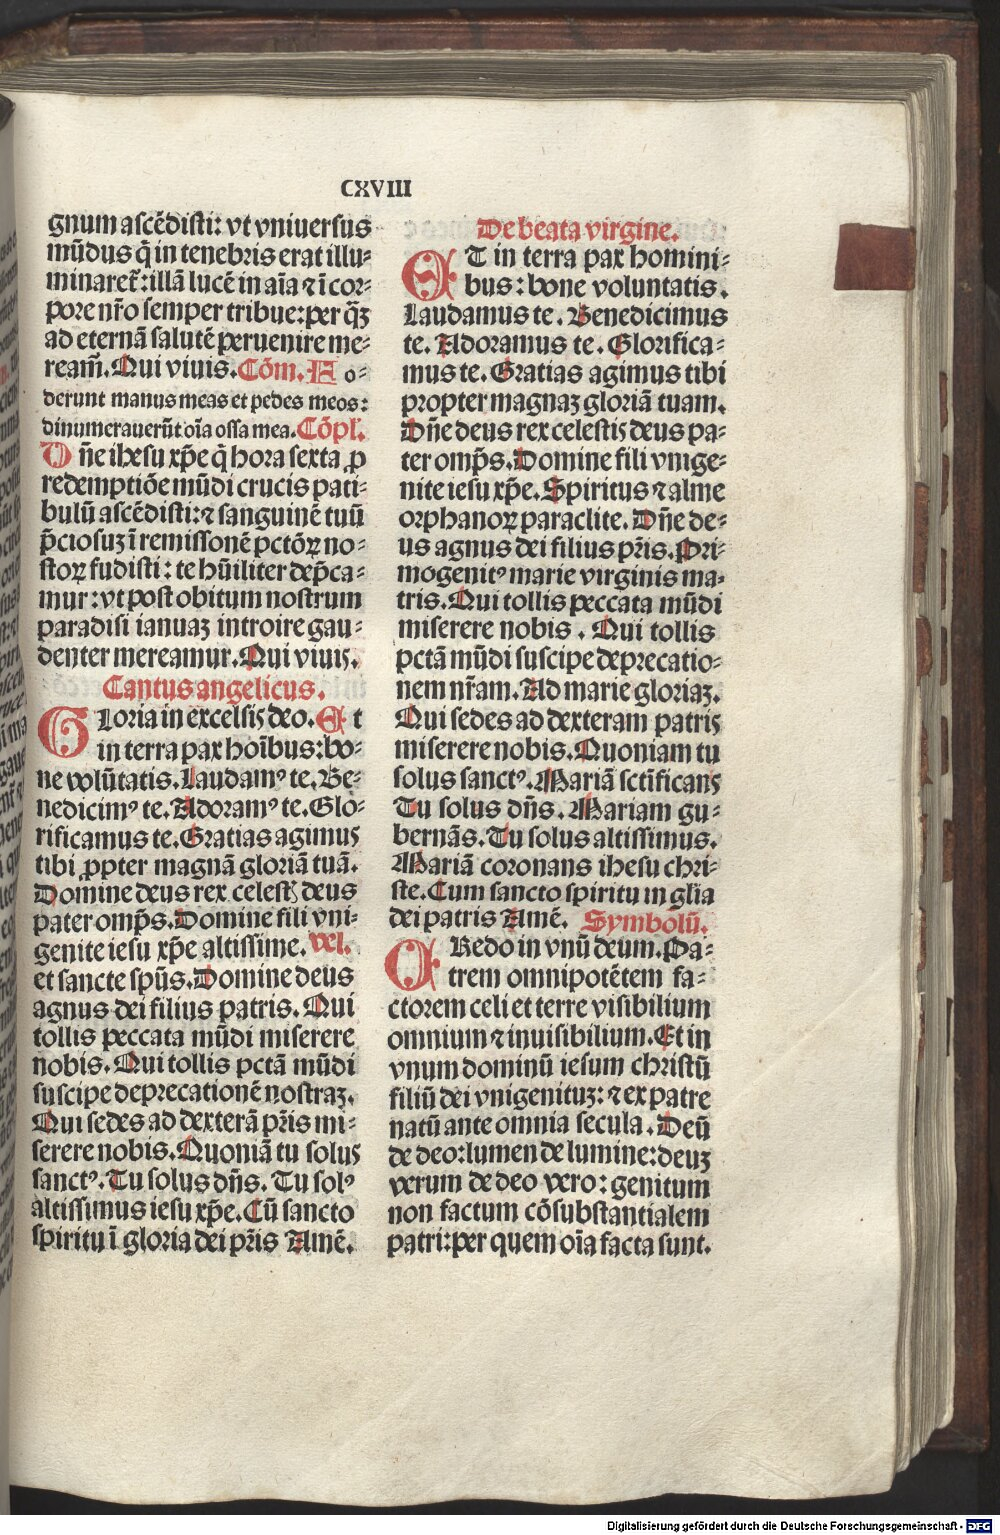 CXVIII
gnum ascēdisti: vt vniuersus
mūdus q̄ in tenebris erat illu-
minaret̄: illā lucē in aīa ⁊ ī cor-
pore nr̄o semper tribue: per q̄ꝫ
ad eternā salutē peruenire me-
ream̄. Qui viuis. Cōm. Fo-
derunt manus meas et pedes meos:
dinumerauerūt oīa ossa mea. Cōpl̄.
Dn̄e ihesu xp̄e q̄ hora sexta ꝓ
redemptiōe mūdi crucis pati-
bulū ascēdisti: ⁊ sanguinē tuū
p̄ciosuꝫ ī remissonē pctōꝝ no-
stoꝝ fudisti: te hūiliter dep̄ca-
mur: vt post obitum nostrum
paradisi ianuaꝫ introire gau-
denter mereamur. Qui viuis.
Cantus angelicus.
GLoria in excelsis deo. Et
in terra pax hoībus: bo-
ne volūtatis. Laudamꝰ te. Be-
nedicimꝰ te. Adoramꝰ te. Glo-
rificamus te. Gratias agimus
tibi ꝓpter magnā gloriā tuā.
Domine deus rex celest̄ deus
pater omp̄s. Domine fili vni-
genite iesu xp̄e altissime. Vel.
et sancte spūs. Domine deus
agnus dei filius patris. Qui
tollis peccata mūdi miserere
nobis. Qui tollis pctā mūdi
suscipe deprecationē nostraꝫ.
Qui sedes ad dexterā pr̄is mi-
serere nobis. Quoniā tu solus
sanctꝰ. Tu solus dn̄s. Tu solꝰ
altissimus iesu xp̄e. Cū sancto
spiritu ī gloria dei pr̄is Amē.
De beata virgine.
ET in terra pax homini-
bus: bone voluntatis.
Laudamus te. Benedicimus
te. Adoramus te. Glorifica-
mus te. Gratias agimus tibi
propter magnaꝫ gloriā tuam.
Dn̄e deus rex celestis deus pa-
ter omp̄s. Domine fili vnige-
nite iesu xp̄e. Spiritus ⁊ alme
orphanoꝝ paraclite. Dn̄e de-
us agnus dei filius pr̄is. Pri-
mogenitꝰ marie virginis ma-
tris. Qui tollis peccata mūdi
miserere nobis. Qui tollis
pctā mūdi suscipe deprecatio-
nem nr̄am. Ad marie gloriaꝫ.
Qui sedes ad dexteram patris
miserere nobis. Quoniam tu
solus sanctꝰ. Mariā sctīficans
Tu solus dn̄s. Mariam gu-
bernās. Tu solus altissimus.
Mariā coronans ihesu chri-
ste. Cum sancto spiritu in glīa
dei patris Amē. Symbolū.
CRedo in vnū deum. Pa-
trem omnipotētem fa-
ctorem celi et terre visibilium
omnium ⁊ inuisibilium. Et in
vnum dominū iesum christū
filiū dei vnigenituꝫ: ⁊ ex patre
natū ante omnia secula. Deū
de deo: lumen de lumine: deuꝫ
verum de deo vero: genitum
non factum cōsubstantialem
patri: per quem oīa facta sunt.
Digitalisierung gefördert durch die Deutsche Forschungsgemeinschaft - DFG